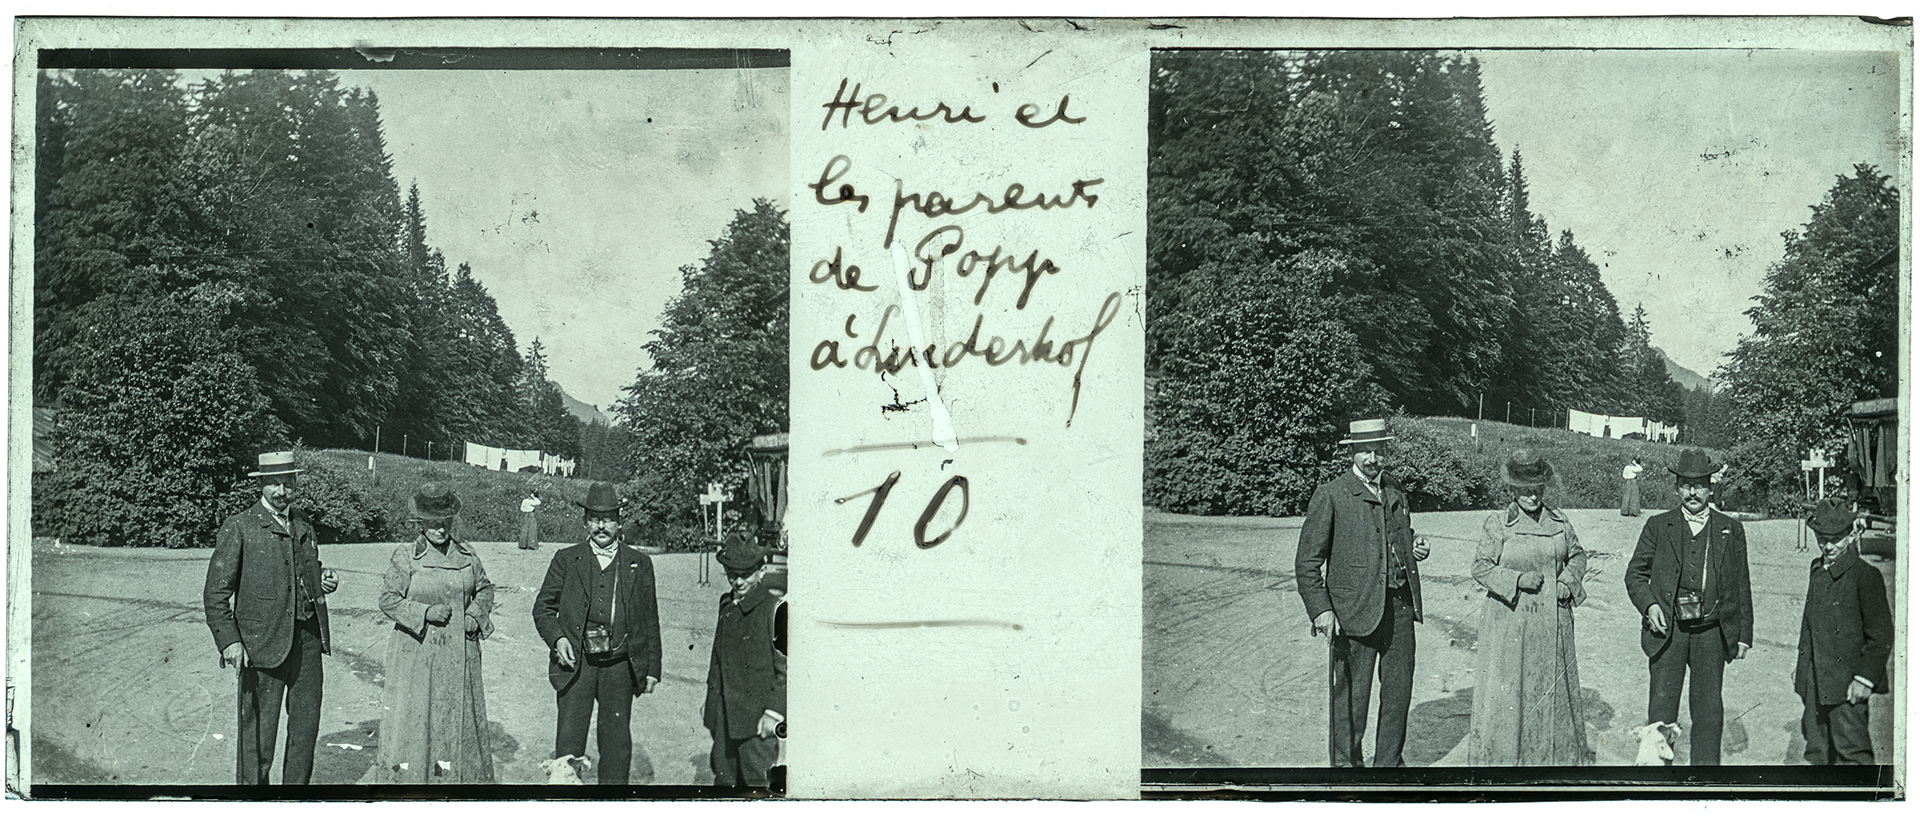 Henri et
les parents
de Popp
à Linderhof
10